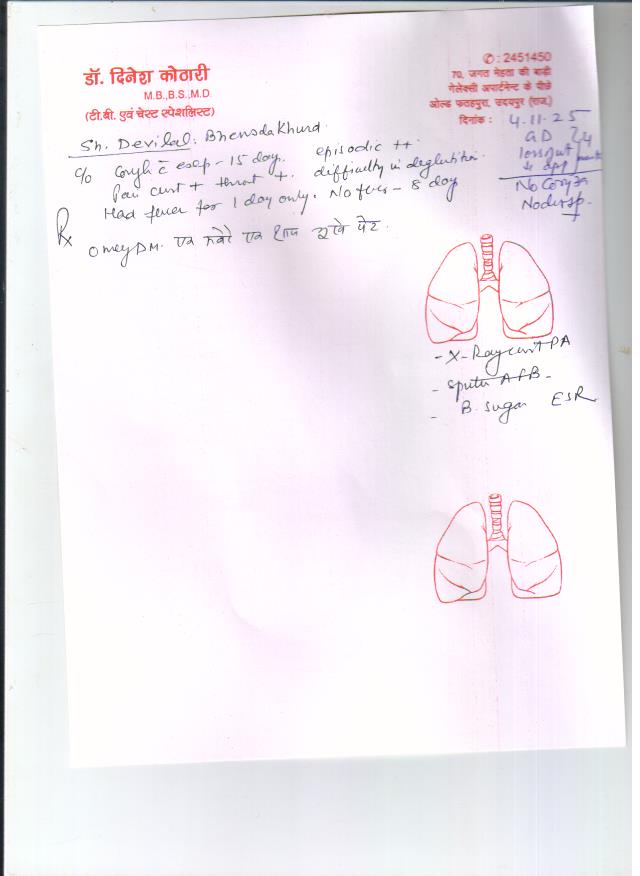 डॉ. दिनेश कोठारी
M.B.,B.S.,M.D.
(टी.बी. एवं चेस्ट स्पेशलिस्ट)
✆: 2451450
70, जगत मेहता की बाड़ी
गेलेक्सी अपार्टमेन्ट के पीछे
ओल्ड फतहपुरा, उदयपुर (राज.)
दिनांक : 4.11.25
Sh. Devilal: Bhensdakhurd.
c/o Cough c̄ - 15 day. episodic ++
Pain + throat +. difficulty in deglutition.
Had fever for 1 day only. No fever - 8 day
No Coryza
Rx
Omez DM. एक एक शाम पेट
- X-Ray PA
- Sputum AFB -
- B. Sugar ESR